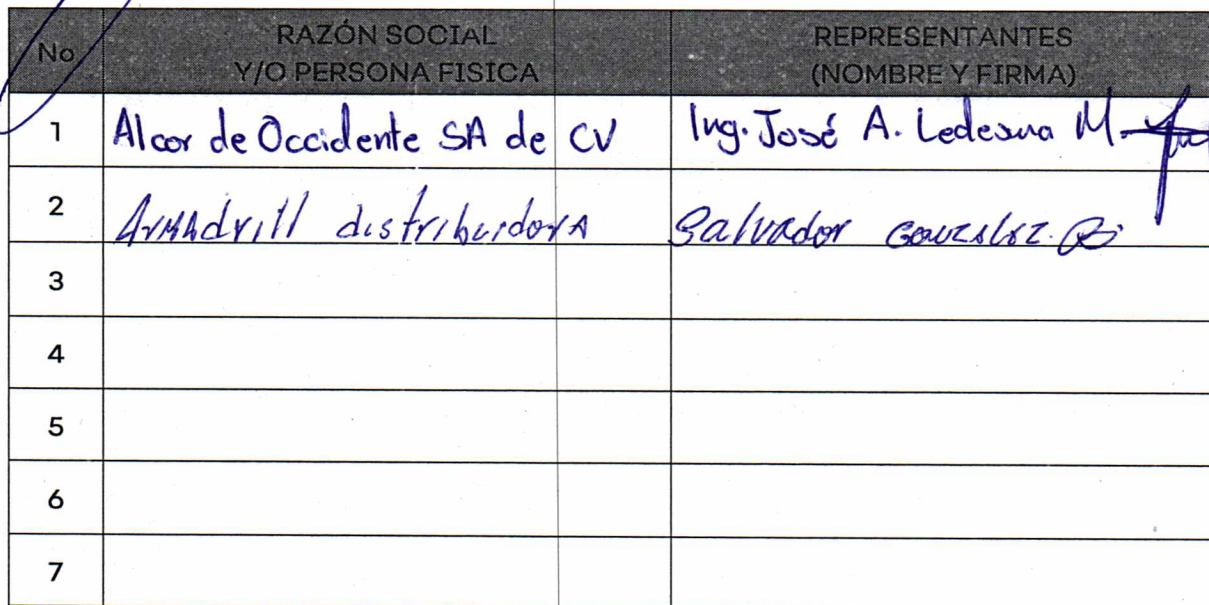 No
RAZÓN SOCIAL
Y/O PERSONA FISICA
REPRESENTANTES
(NOMBRE Y FIRMA)
1 Alcor de Occidente SA de CV Ing. José A. Ledesma M.
2 Armadrill distribuidora Salvador Gonzalez
3
4
5
6
7